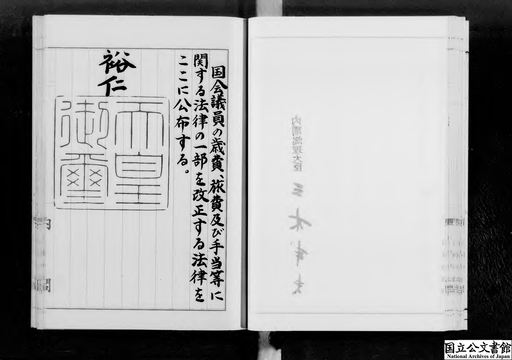 国会議員の歳費、旅費及び手当等に
関する法律の一部を改正する法律を
ここに公布する。
裕仁
天皇
御璽
内閣総理大臣
三木武夫
国立公文書館
National Archives of Japan